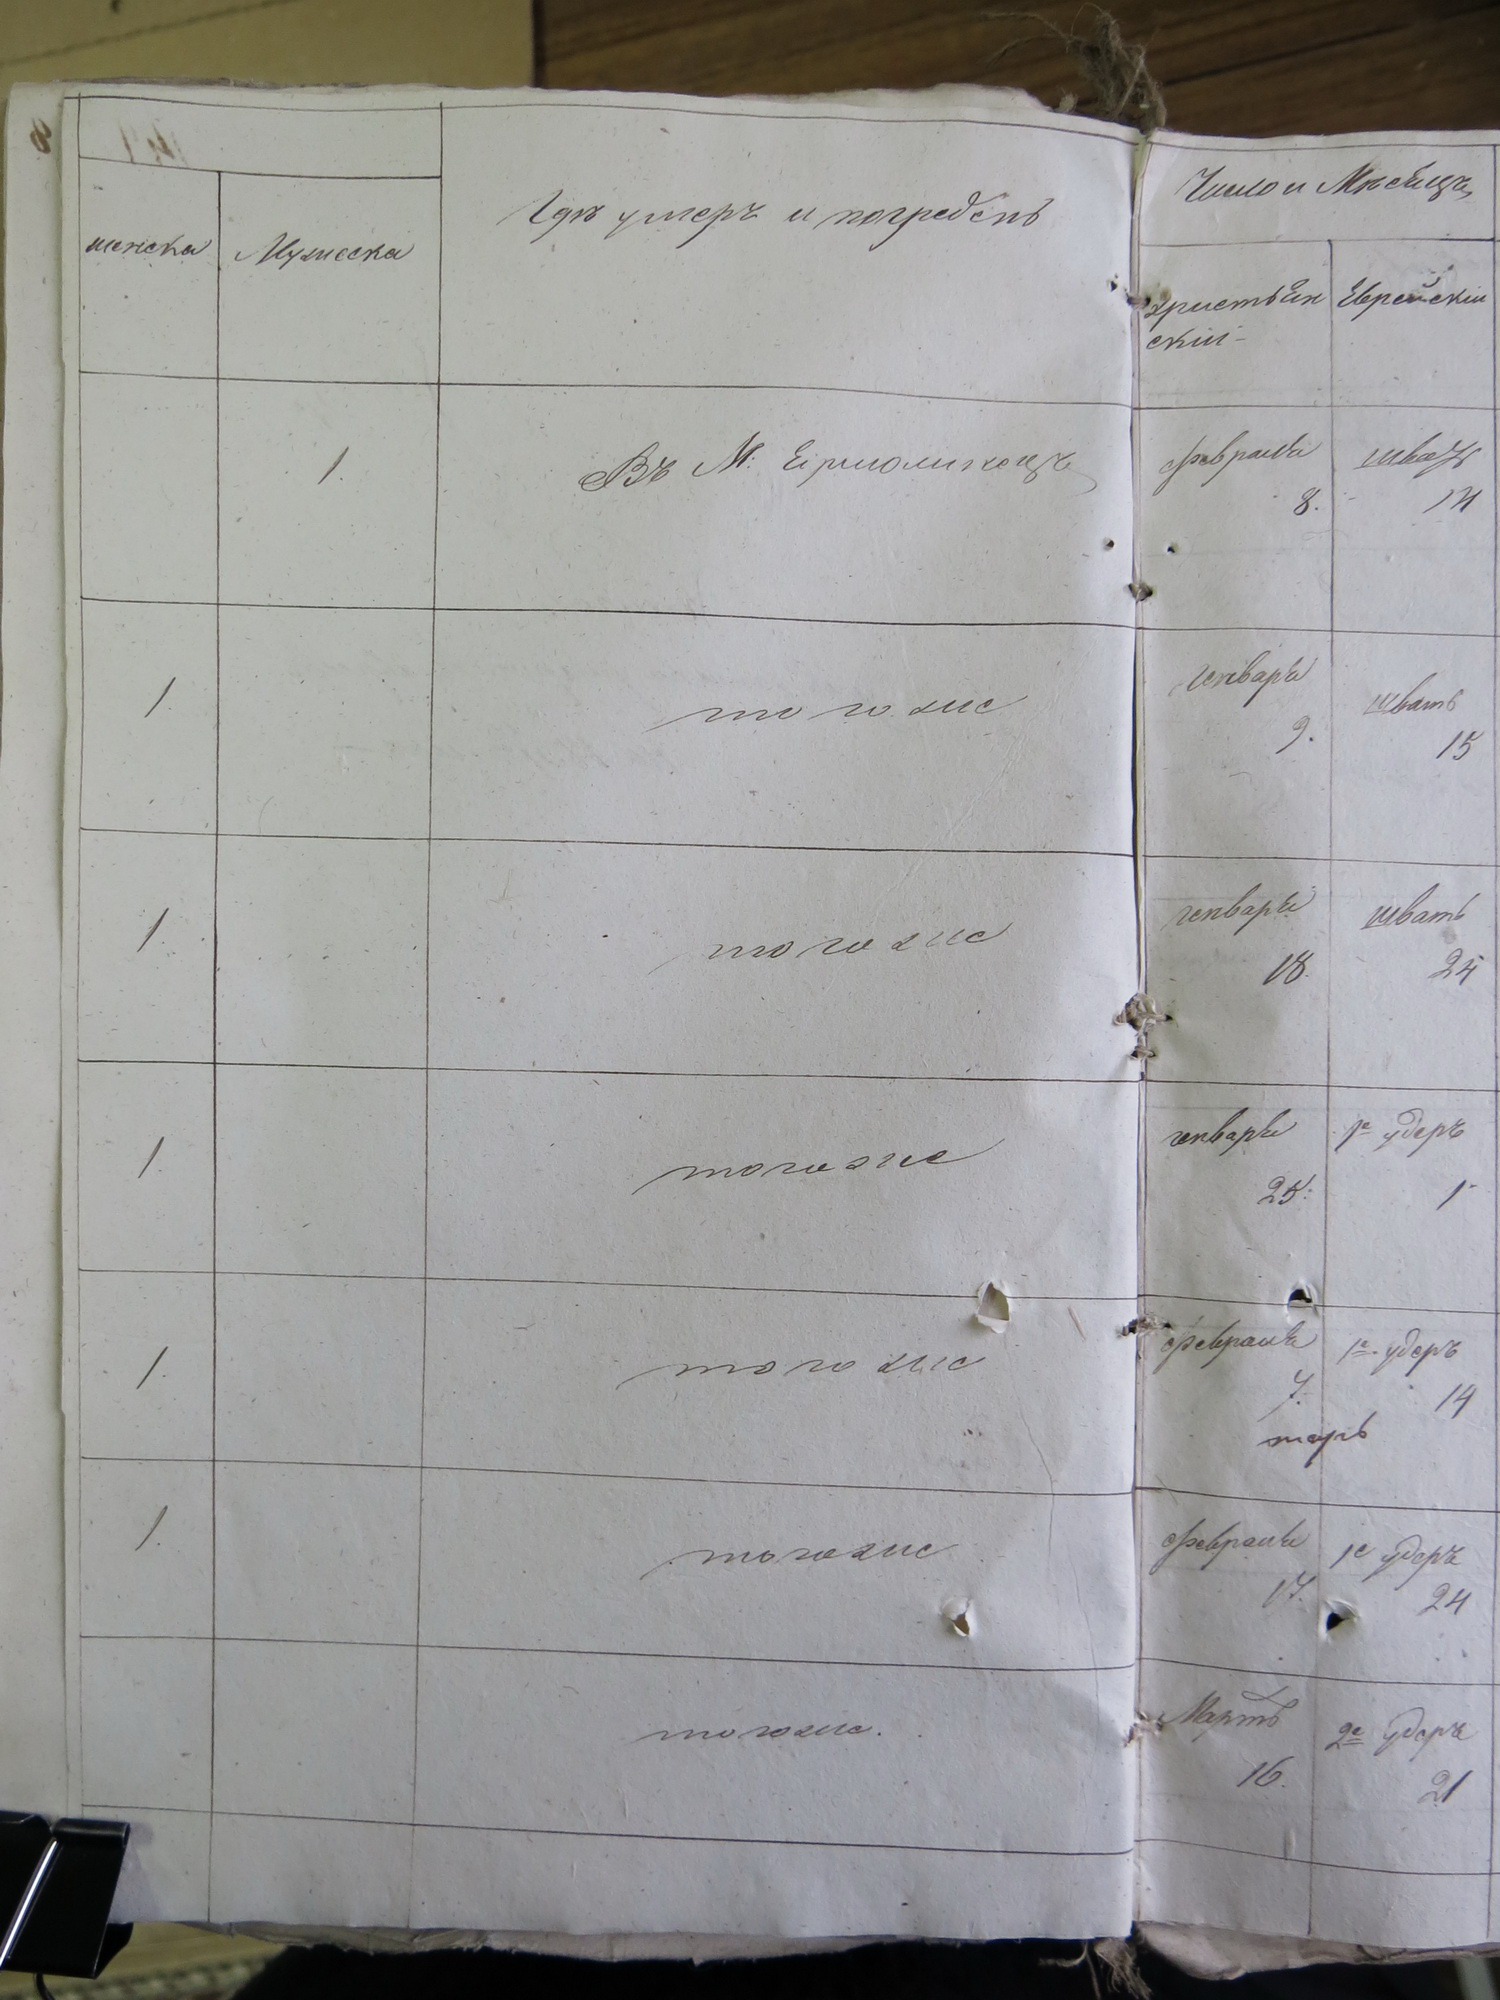 женска
Мужеска
Где умеръ и погребенъ
Число и Месяцъ
христьян
скіи
Еврейскіи
1.
Въ М: Ермолинецъ
февраля
8.
шватъ
14
1.
тогоже
генваря
9.
шватъ
15
1.
тогоже
генваря
18.
шватъ
24
1.
тогоже
генваря
25.
1е удеръ
1
1.
тогоже
февраля
7.
1е удеръ
14
1.
тогоже
февраля
17.
1е удеръ
24
тогоже.
Мартъ
16.
2е удеръ
21